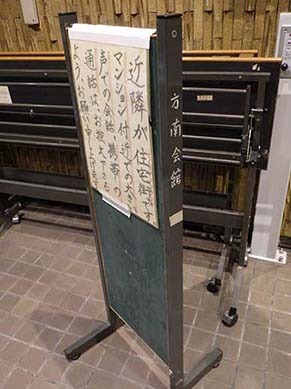 近隣が住宅街です
マンション付近での大きい
声での会話、携帯での
通話はお控え下さる
ようお願い申し上げます
方南会館